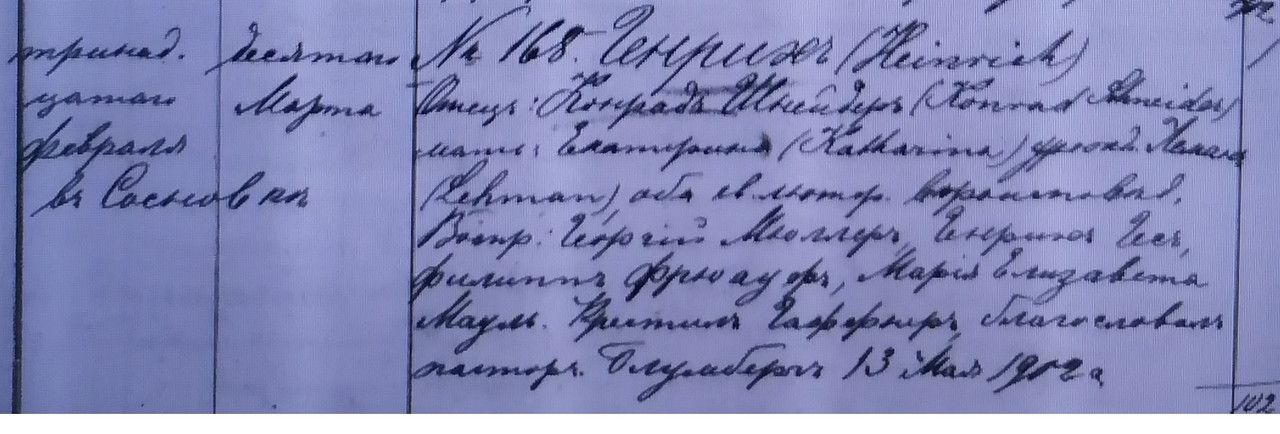 тринад.
цатаго
февраля
въ Сосновкѣ
десятаго
Марта
№ 168. Генрихъ (Heinrich)
Отецъ: Конрадъ Шнейдеръ (Konrad Schneider)
мать: Екатерина (Katharina) урожд. Леман
(Lehman), оба ев. лютер. вероисповѣд.
Воспр: Георгій Мюллеръ, Генрихъ Гес,
Филиппъ Фрюауфъ, Марія Елизавета
Мауль. Крестилъ Гаффнеръ, благословилъ
пасторъ Блумбергъ 13 Мая 1902 г
102